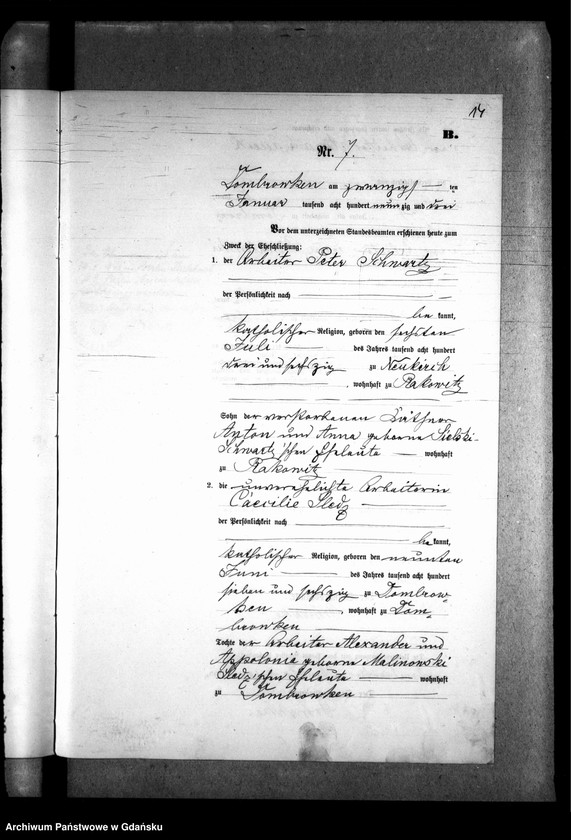 14
B.
Nr. 7.
Dombrowken am zwanzigsten
Januar tausend acht hundert neunzig und drei
Vor dem unterzeichneten Standesbeamten erschienen heute zum
Zweck der Eheschließung:
1. der Arbeiter Peter Schwartz
der Persönlichkeit nach
be kannt,
katholischer Religion, geboren den sechsten
Juli des Jahres tausend acht hundert
drei und sechszig zu Neukirch
, wohnhaft zu Rakowitz
Sohn der verstorbenen Käthner
Anton und Anna geborne Sielski-
Schwartz'schen Eheleute wohnhaft
zu Rakowitz
2. die unverehelichte Arbeiterin
Caecilie Sledz
der Persönlichkeit nach
be kannt,
katholischer Religion, geboren den neunten
Juni des Jahres tausend acht hundert
sieben und sechszig zu Dombrow-
ken , wohnhaft zu Dom-
browken
Tochter der Arbeiter Alexander und
Appolonia geborne Malinowski
Sledz'schen Eheleute wohnhaft
zu Dombrowken
Archiwum Państwowe w Gdańsku